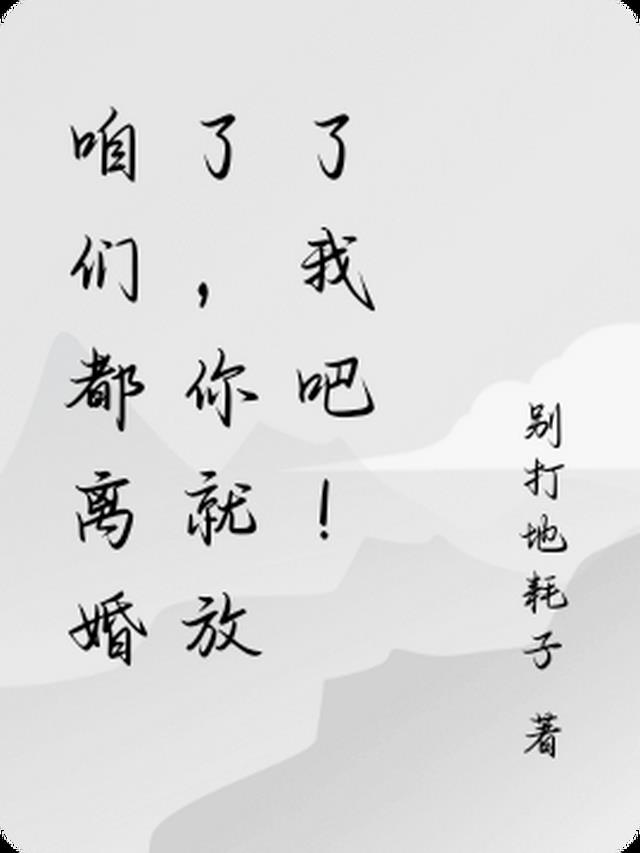 咱们都离婚
了，你就放
了我吧！
别打地耗子 著